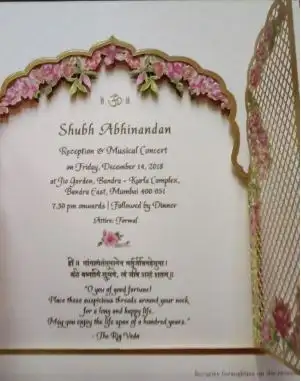 ॥ ॐ ॥
Shubh Abhinandan
Reception & Musical Concert
on Friday, December 14, 2018
at Jio Garden, Bandra - Kurla Complex,
Bandra East, Mumbai 400 051
7.30 pm onwards | Followed by Dinner
Attire: Formal
कंठे बध्नामि सुभगे, त्वं जीव शरदः शतम्॥
"O you of good fortune!
Place these auspicious threads around your neck
for a long and happy life.
May you enjoy the life span of a hundred years."
- The Rig Veda
formalities on the reverse